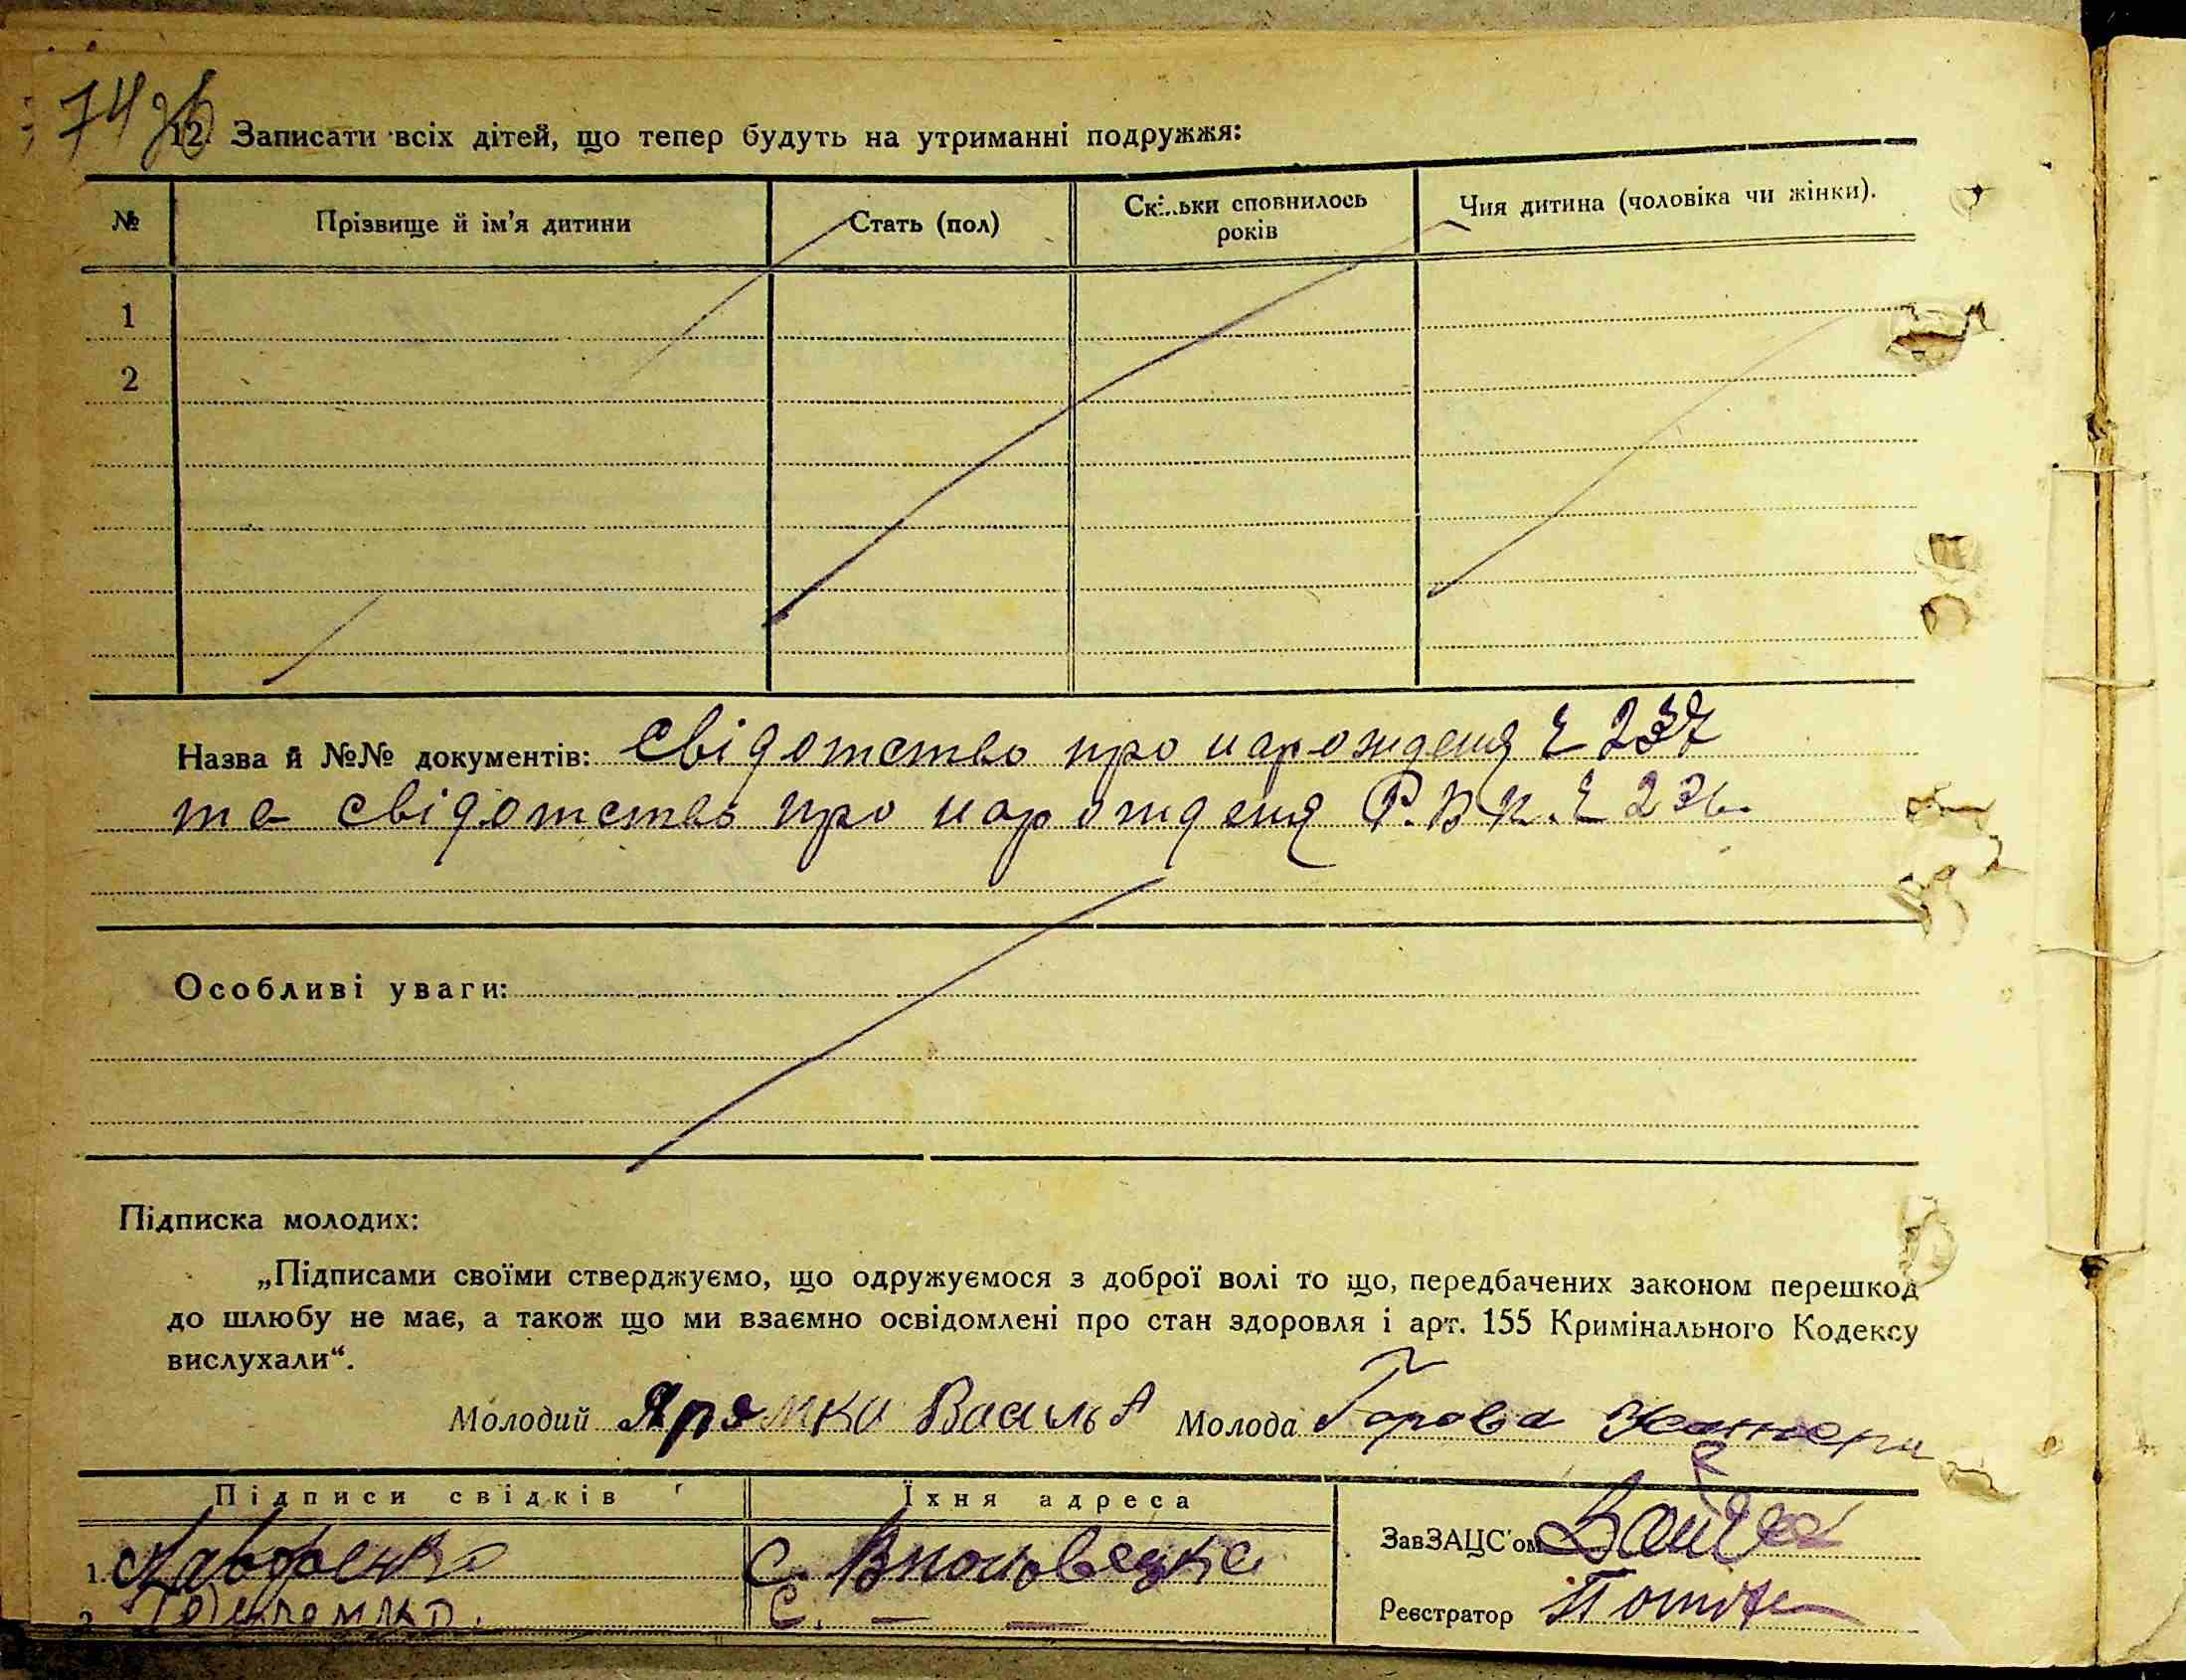 74
12. Записати всіх дітей, що тепер будуть на утриманні подружжя:
№ Прізвище й ім'я дитини Стать (пол) Скільки сповнилось років Чия дитина (чоловіка чи жінки).
1
2
Назва й №№ документів: свідотство про нарожденя № 237
та свідотство про нарожденя Р.В.К. № 236.
Особливі уваги:
Підписка молодих:
„Підписами своїми стверджуємо, що одружуємося з доброї волі то що, передбачених законом перешкод
до шлюбу не має, а також що ми взаємно освідомлені про стан здоровля і арт. 155 Кримінального Кодексу
вислухали“.
Молодий Яромка Василь Молода Горова
Підписи свідків Їхня адреса
1. с.
2. с. — —
ЗавЗАЦС'ом
Реєстратор